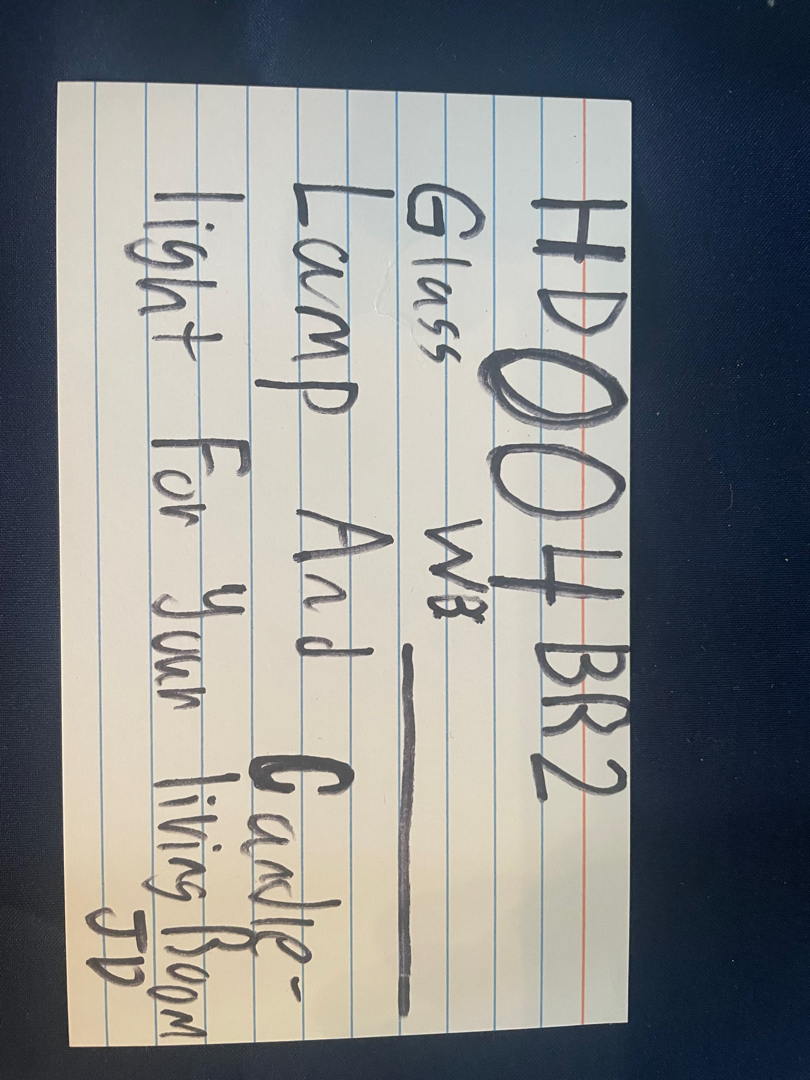 HD004BR2
Glass WB
Lamp And Candle-
light For Your living Room
JD